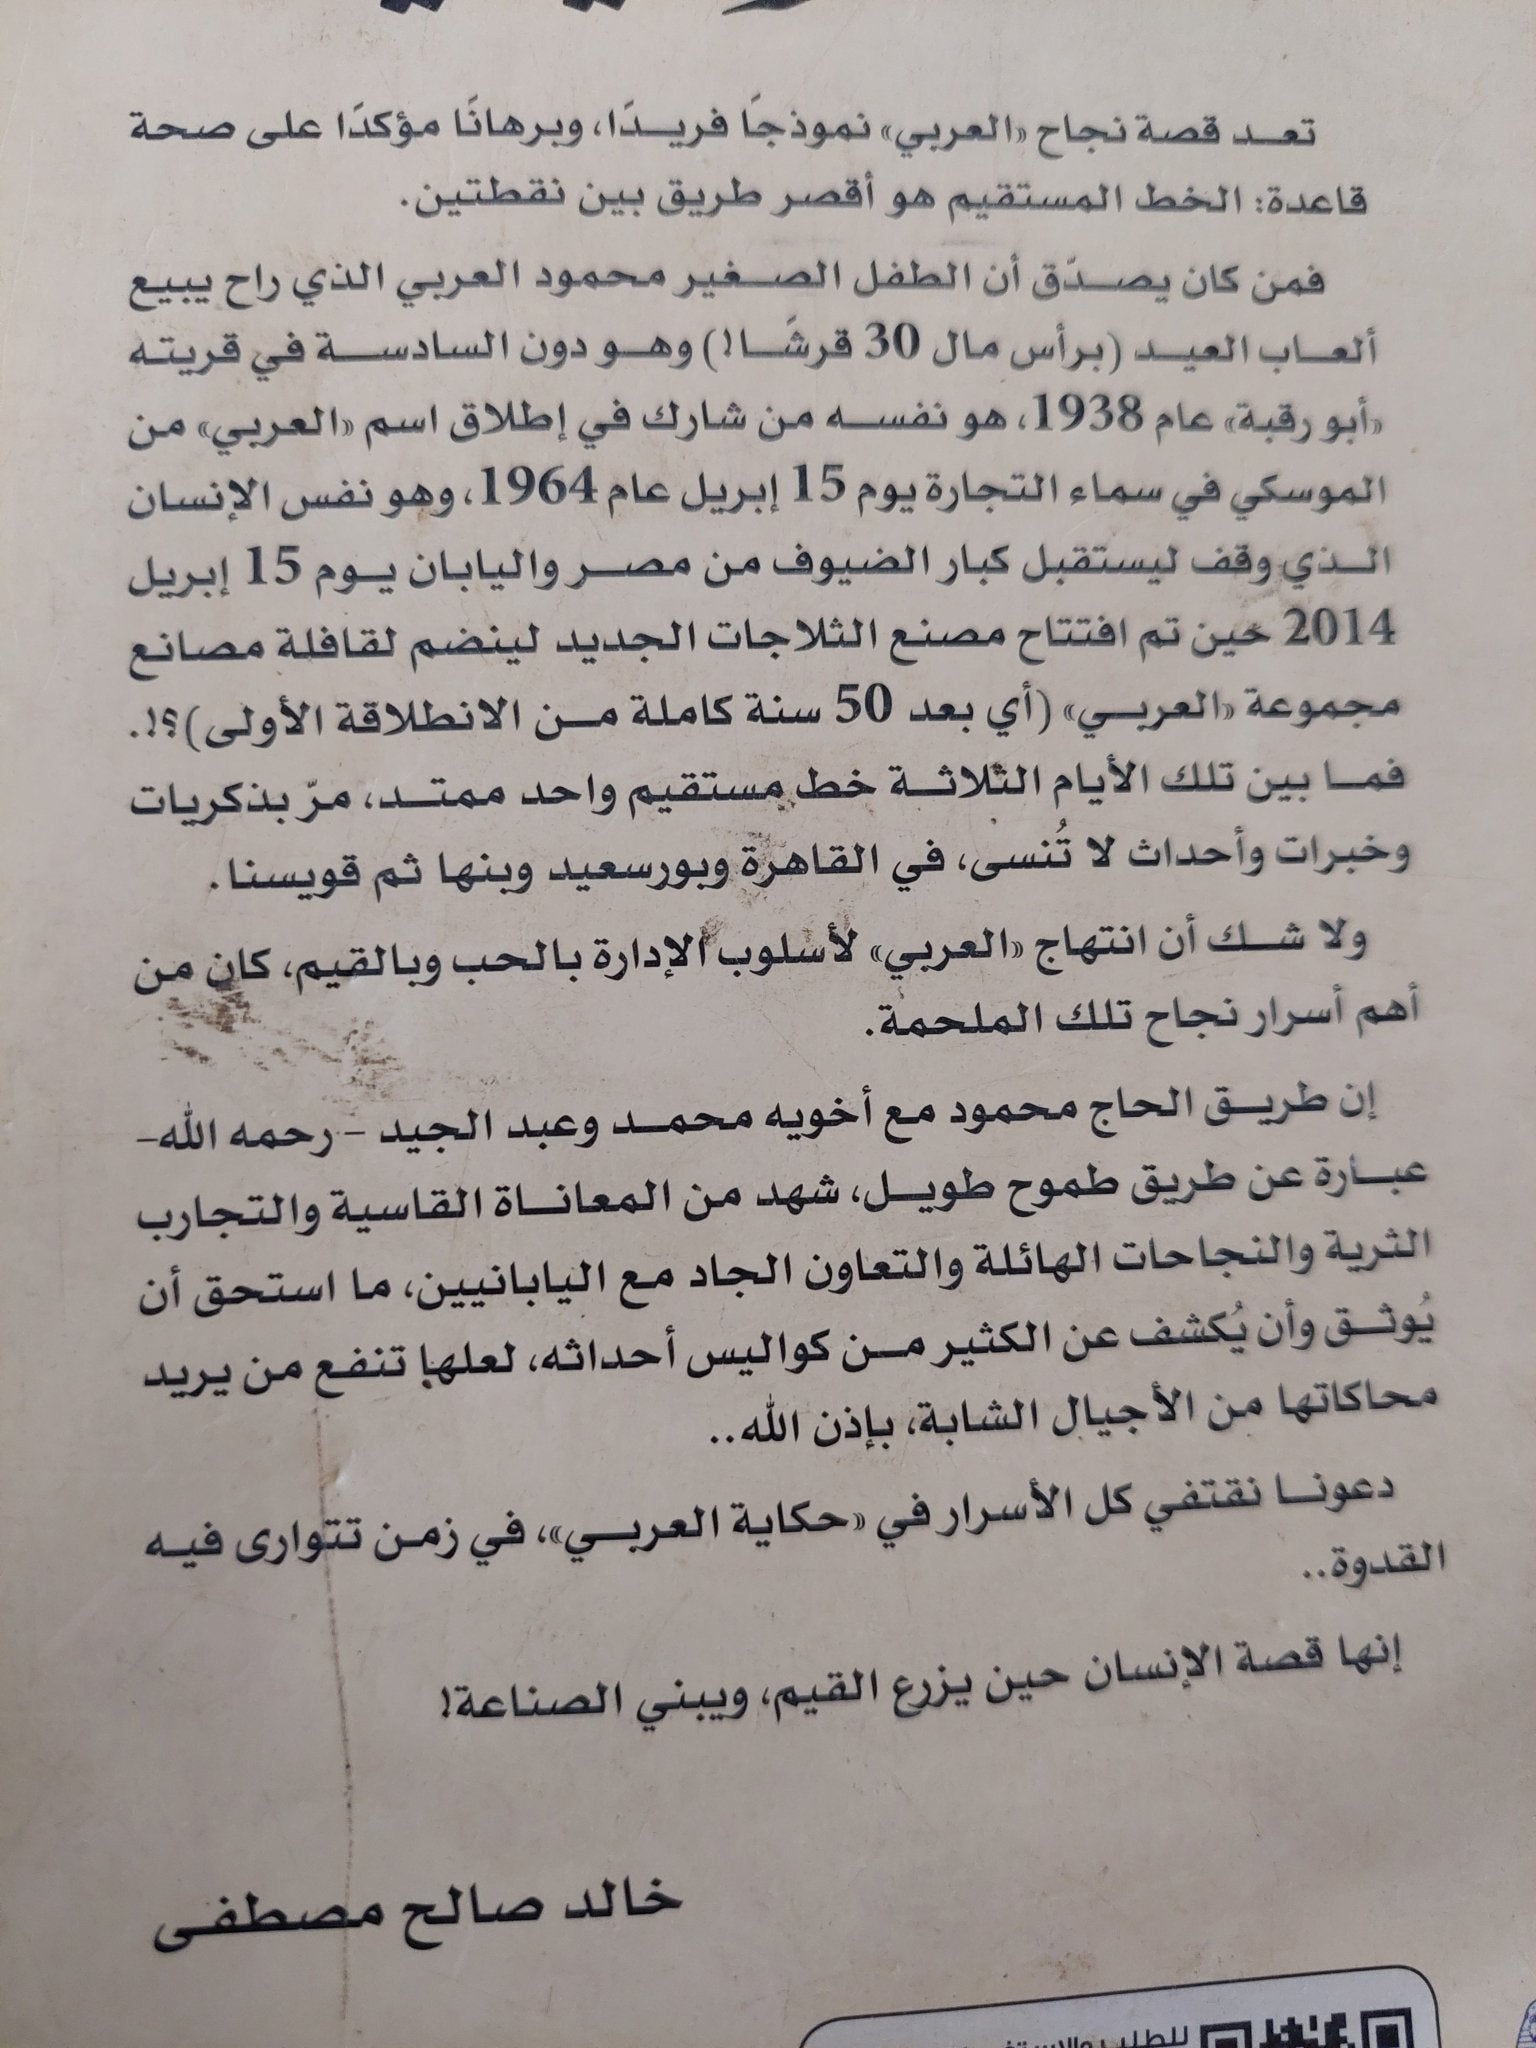 تعد قصة نجاح «العربي» نموذجًا فريدًا، وبرهانًا مؤكدًا على صحة
قاعدة: الخط المستقيم هو أقصر طريق بين نقطتين.
فمن كان يصدّق أن الطفل الصغير محمود العربي الذي راح يبيع
ألعاب العيد (برأس مال 30 قرشًا!) وهو دون السادسة في قريته
«أبو رقبة» عام 1938، هو نفسه من شارك في إطلاق اسم «العربي» من
الموسكي في سماء التجارة يوم 15 إبريل عام 1964، وهو نفس الإنسان
الذي وقف ليستقبل كبار الضيوف من مصر واليابان يوم 15 إبريل
2014 حين تم افتتاح مصنع الثلاجات الجديد لينضم لقافلة مصانع
مجموعة «العربي» (أي بعد 50 سنة كاملة من الانطلاقة الأولى)؟!.
فما بين تلك الأيام الثلاثة خط مستقيم واحد ممتد، مرّ بذكريات
وخبرات وأحداث لا تُنسى، في القاهرة وبورسعيد وبنها ثم قويسنا.
ولا شك أن انتهاج «العربي» لأسلوب الإدارة بالحب وبالقيم، كان من
أهم أسرار نجاح تلك الملحمة.
إن طريق الحاج محمود مع أخويه محمد وعبد الجيد – رحمه الله–
عبارة عن طريق طموح طويل، شهد من المعاناة القاسية والتجارب
الثرية والنجاحات الهائلة والتعاون الجاد مع اليابانيين، ما استحق أن
يُوثق وأن يُكشف عن الكثير من كواليس أحداثه، لعلها تنفع من يريد
محاكاتها من الأجيال الشابة، بإذن الله..
دعونا نقتفي كل الأسرار في «حكاية العربي»، في زمن تتوارى فيه
القدوة..
إنها قصة الإنسان حين يزرع القيم، ويبني الصناعة!
خالد صالح مصطفى
للطلب